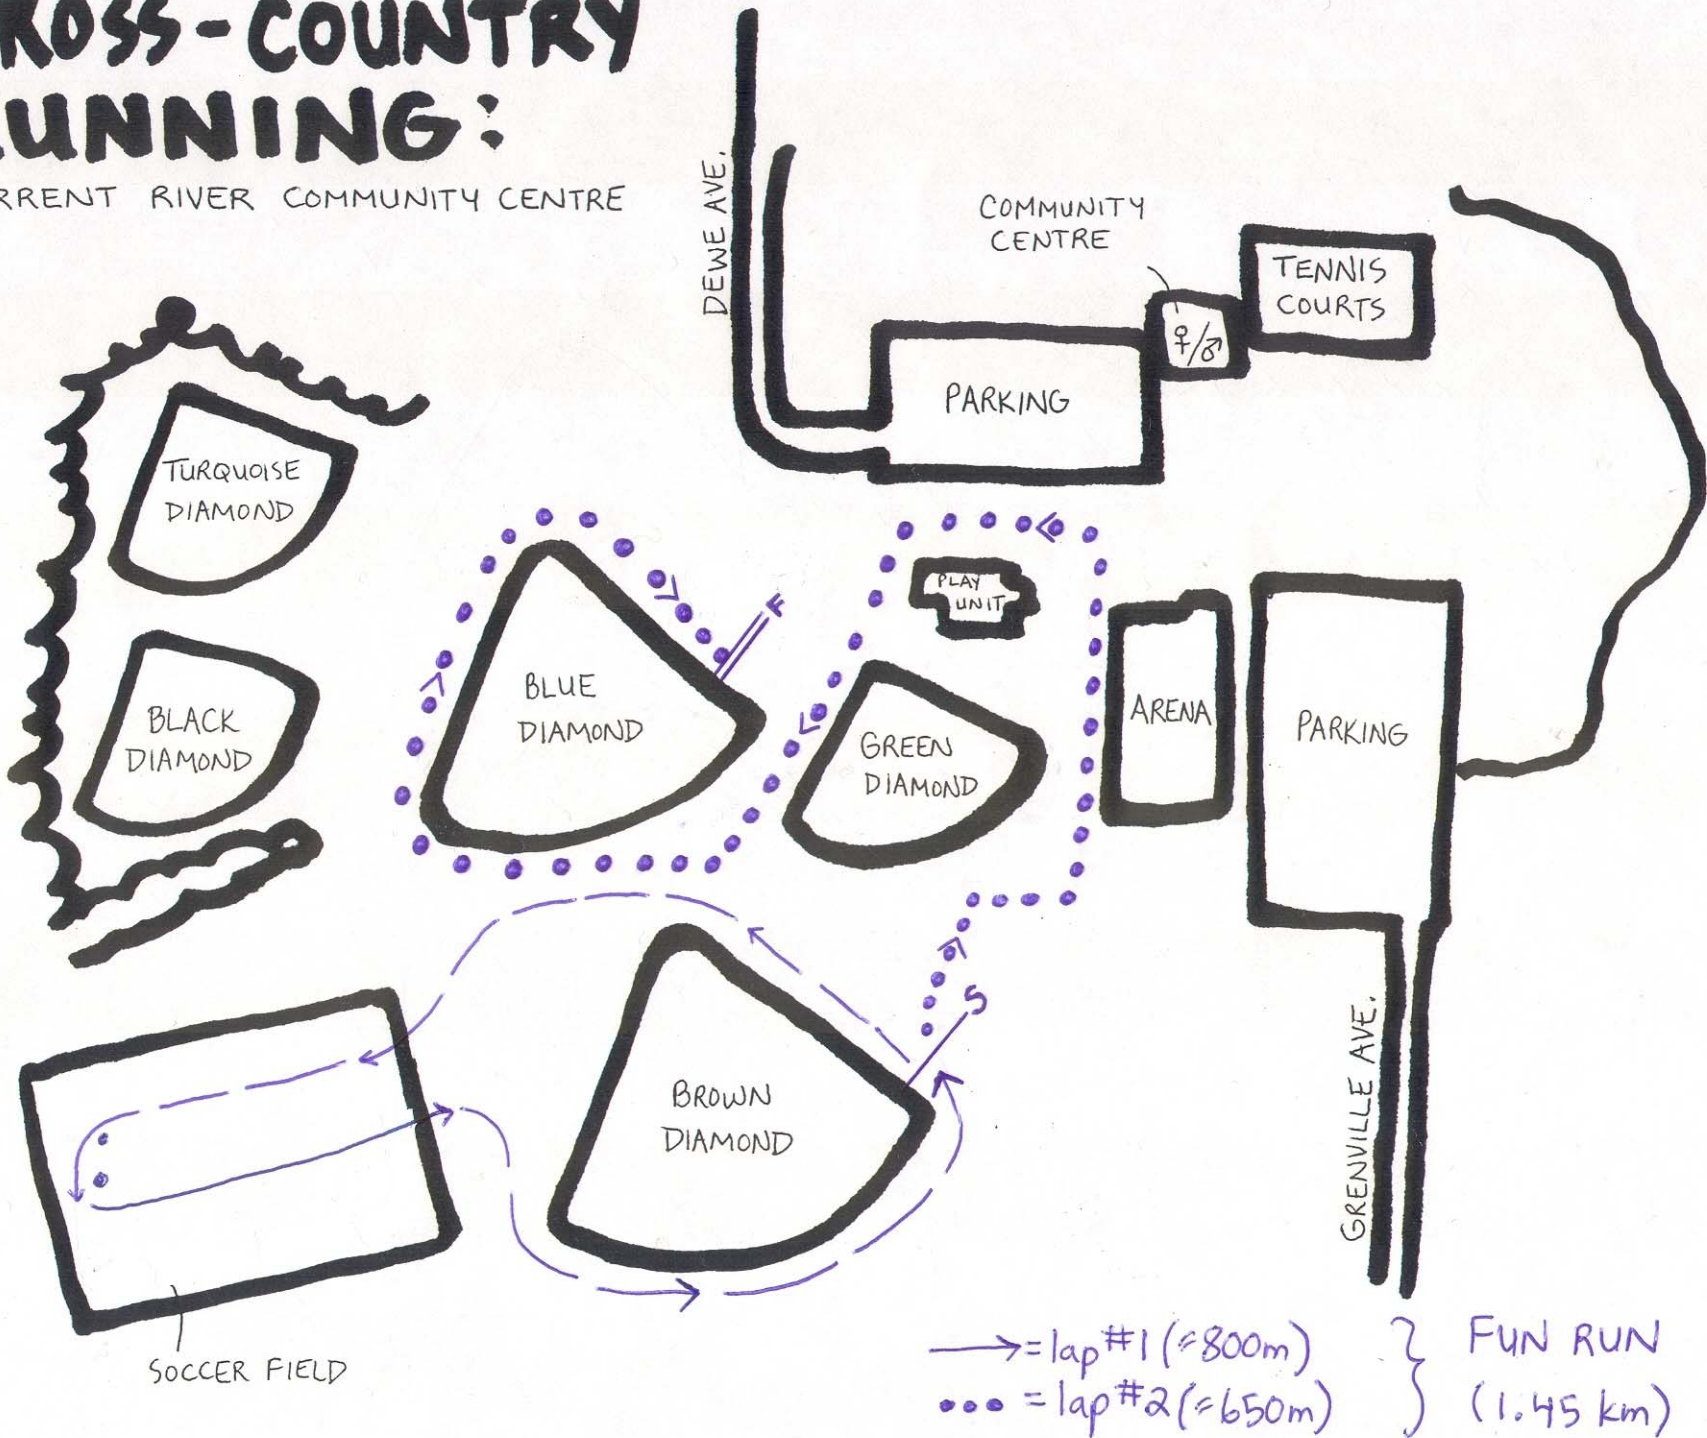 ROSS-COUNTRY
UNNING:
RRENT RIVER COMMUNITY CENTRE
DEWE AVE.
COMMUNITY
CENTRE
TENNIS
COURTS
♀/♂
PARKING
TURQUOISE
DIAMOND
PLAY
UNIT
F
BLUE
DIAMOND
BLACK
DIAMOND
GREEN
DIAMOND
ARENA
PARKING
S
BROWN
DIAMOND
GRENVILLE AVE.
SOCCER FIELD
→ = lap #1 (≈800m)
••• = lap #2 (≈650m)
FUN RUN
(1.45 km)